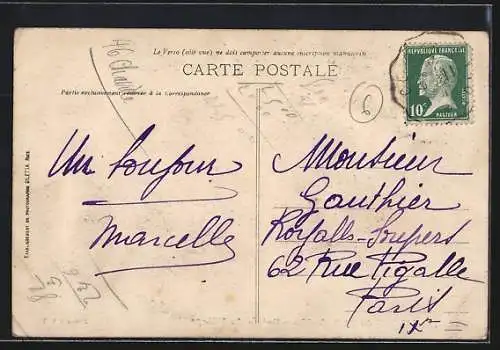 Le Verso (côté vue) ne doit comporter aucune inscription manuscrite
CARTE POSTALE
Partie exclusivement réservée à la Correspondance
RÉPUBLIQUE FRANÇAISE
10c
PASTEUR
Un bonjour
Marcelle
Monsieur
Gauthier
Royalls-Soupers
62 Rue Pigalle
Paris
IXe
ÉTABLISSEMENT DE PHOTOGRAPHIE